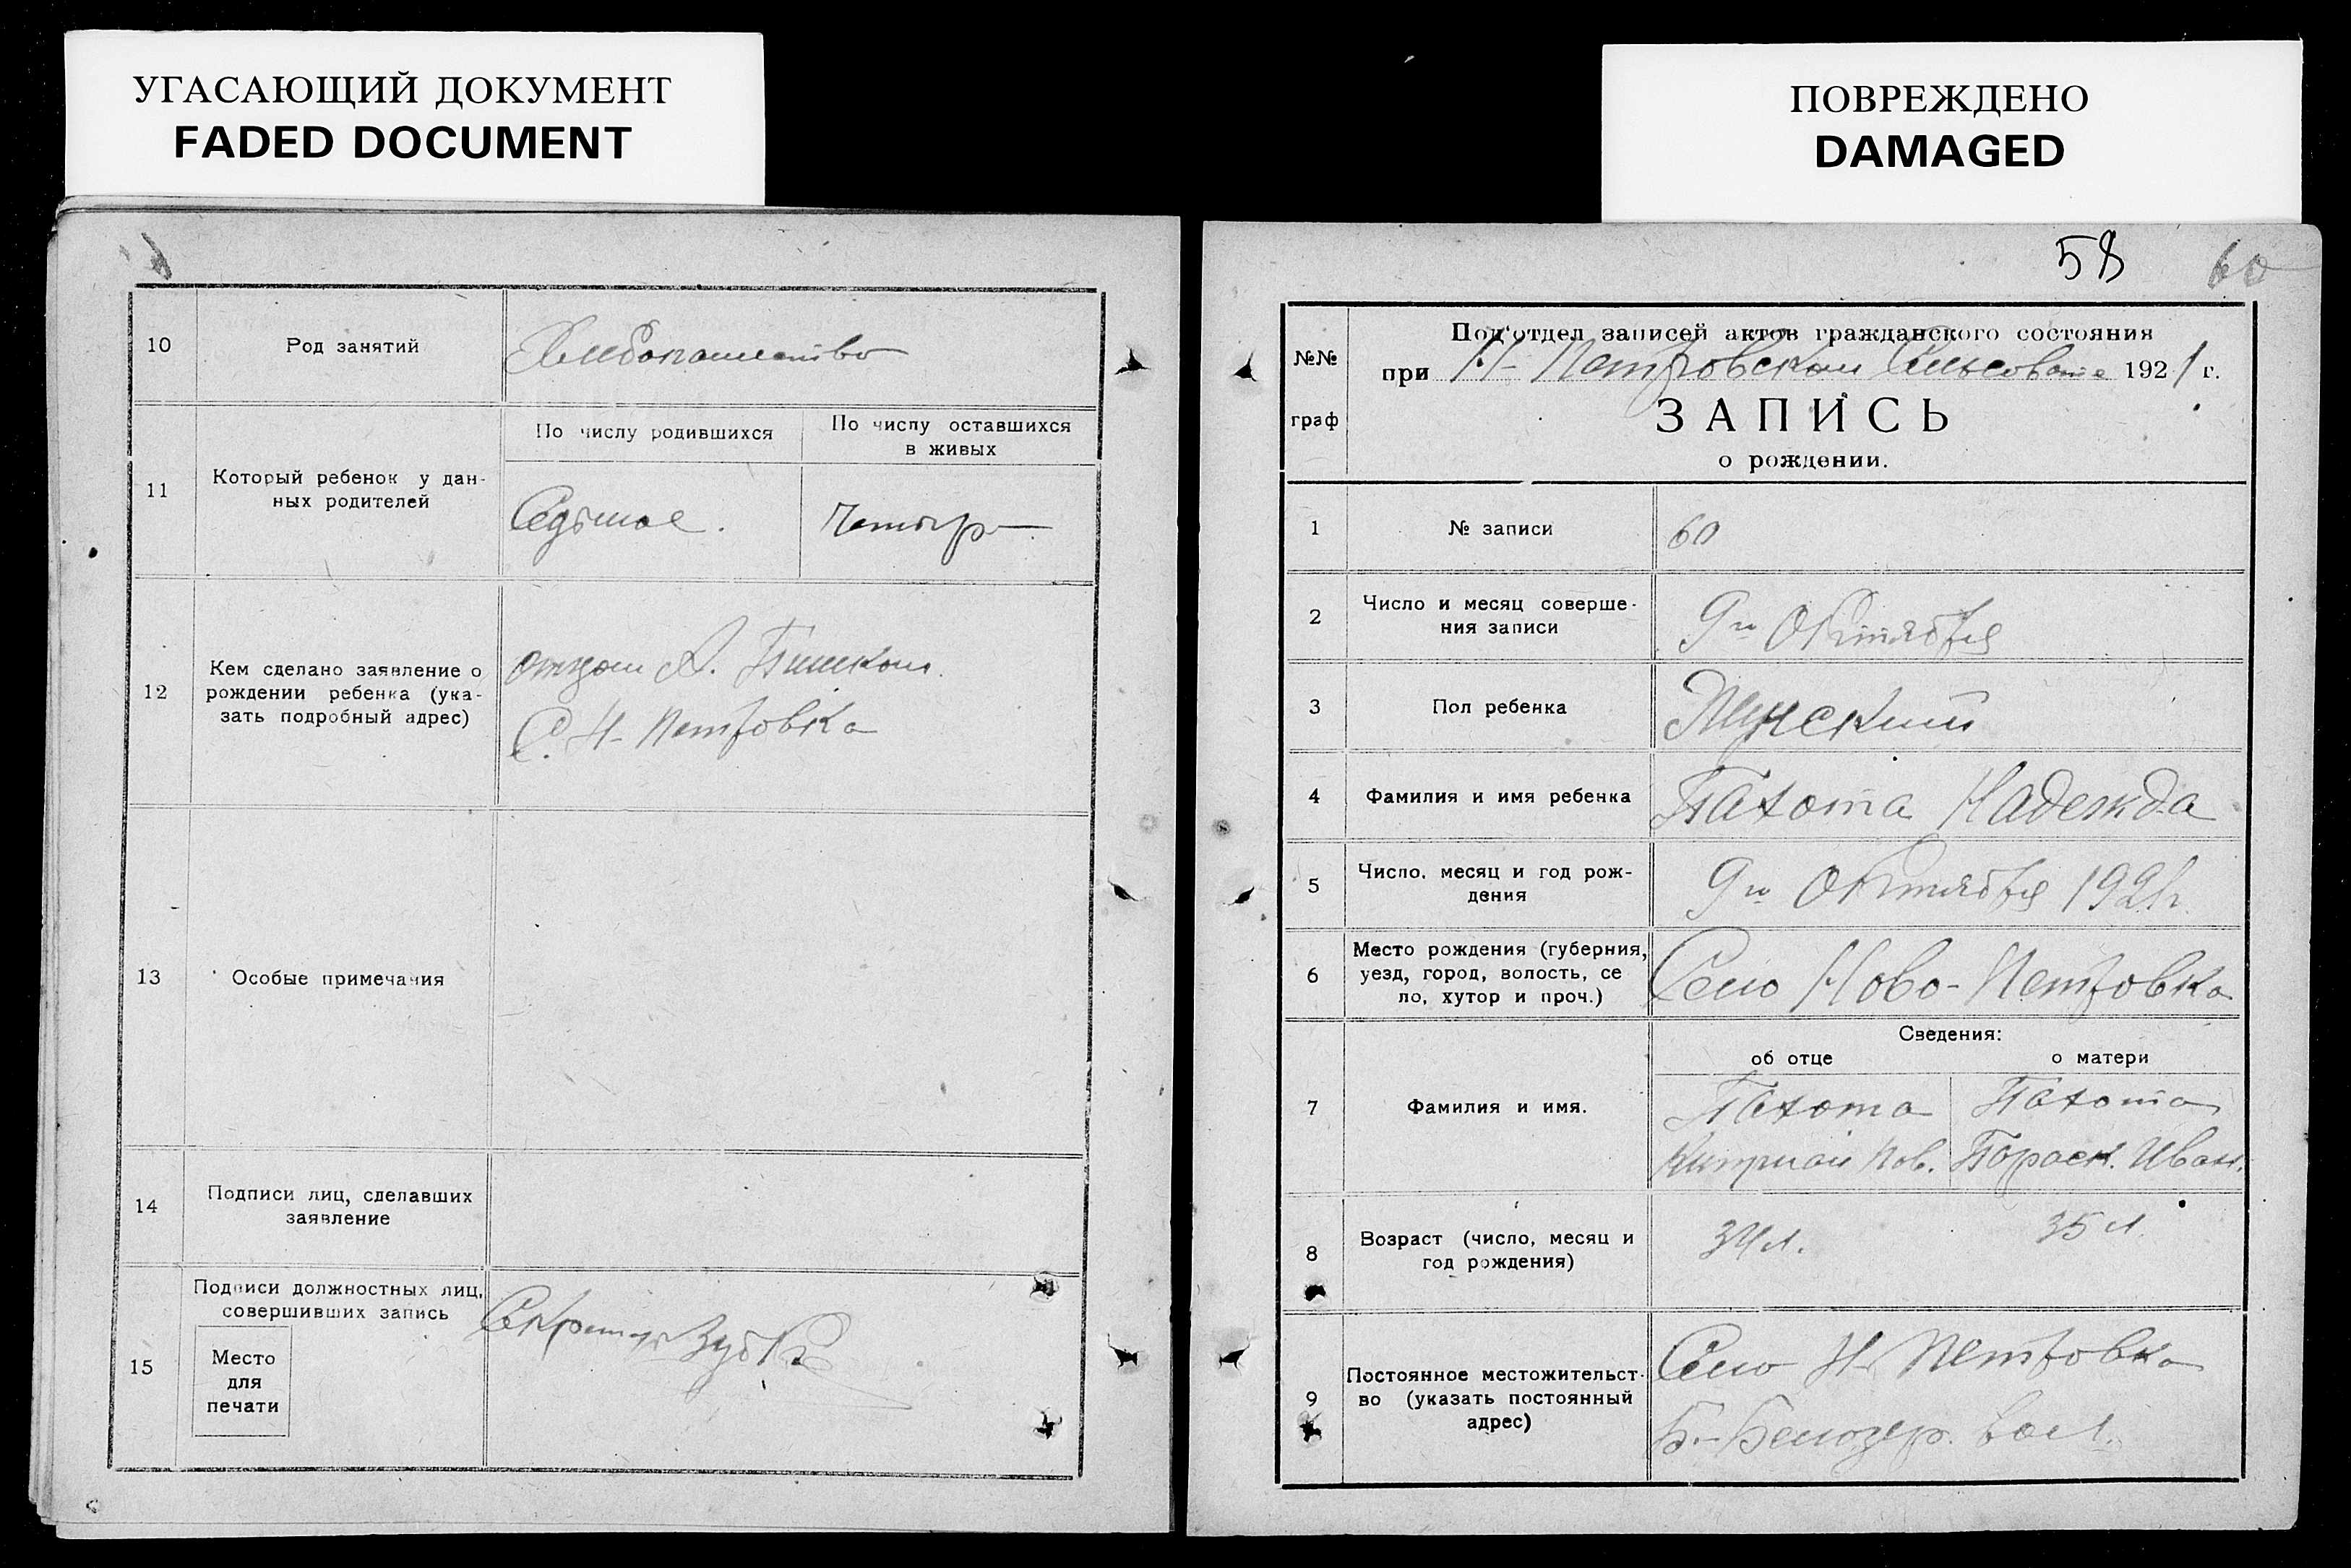 УГАСАЮЩИЙ ДОКУМЕНТ
FADED DOCUMENT
10 Род занятий Хлебопашество
11 Который ребенок у дан-
ных родителей
По числу родившихся
По числу оставшихся
в живых
Седьмое.
Четыр
12 Кем сделано заявление о
рождении ребенка (ука-
зать подробный адрес)
отцом
С. Н-Петровка
13 Особые примечания
14 Подписи лиц, сделавших
заявление
15 Подписи должностных лиц,
совершивших запись
Место
для
печати
Секретарь
ПОВРЕЖДЕНО
DAMAGED
58 60
№№
граф
Под'отдел записей актов гражданского состояния
при Н-Петровском Сельсовете 1921 г.
ЗАПИСЬ
о рождении.
1 № записи 60
2 Число и месяц соверше-
ния записи
9го Октября
3 Пол ребенка Женский
4 Фамилия и имя ребенка Пахота Надежда
5 Число, месяц и год рож-
дения
9го Октября 1921г.
6 Место рождения (губерния,
уезд, город, волость, се
ло, хутор и проч.)
Село Ново-Петровка
Сведения:
об отце о матери
7 Фамилия и имя.
Пахота Пахота
Киприан Пав. Пораск. Иван.
8 Возраст (число, месяц и
год рождения)
34 л. 35 л.
9 Постоянное местожительст-
во (указать постоянный
адрес)
Село Н-Петровка
Б.-Белозер. вол.